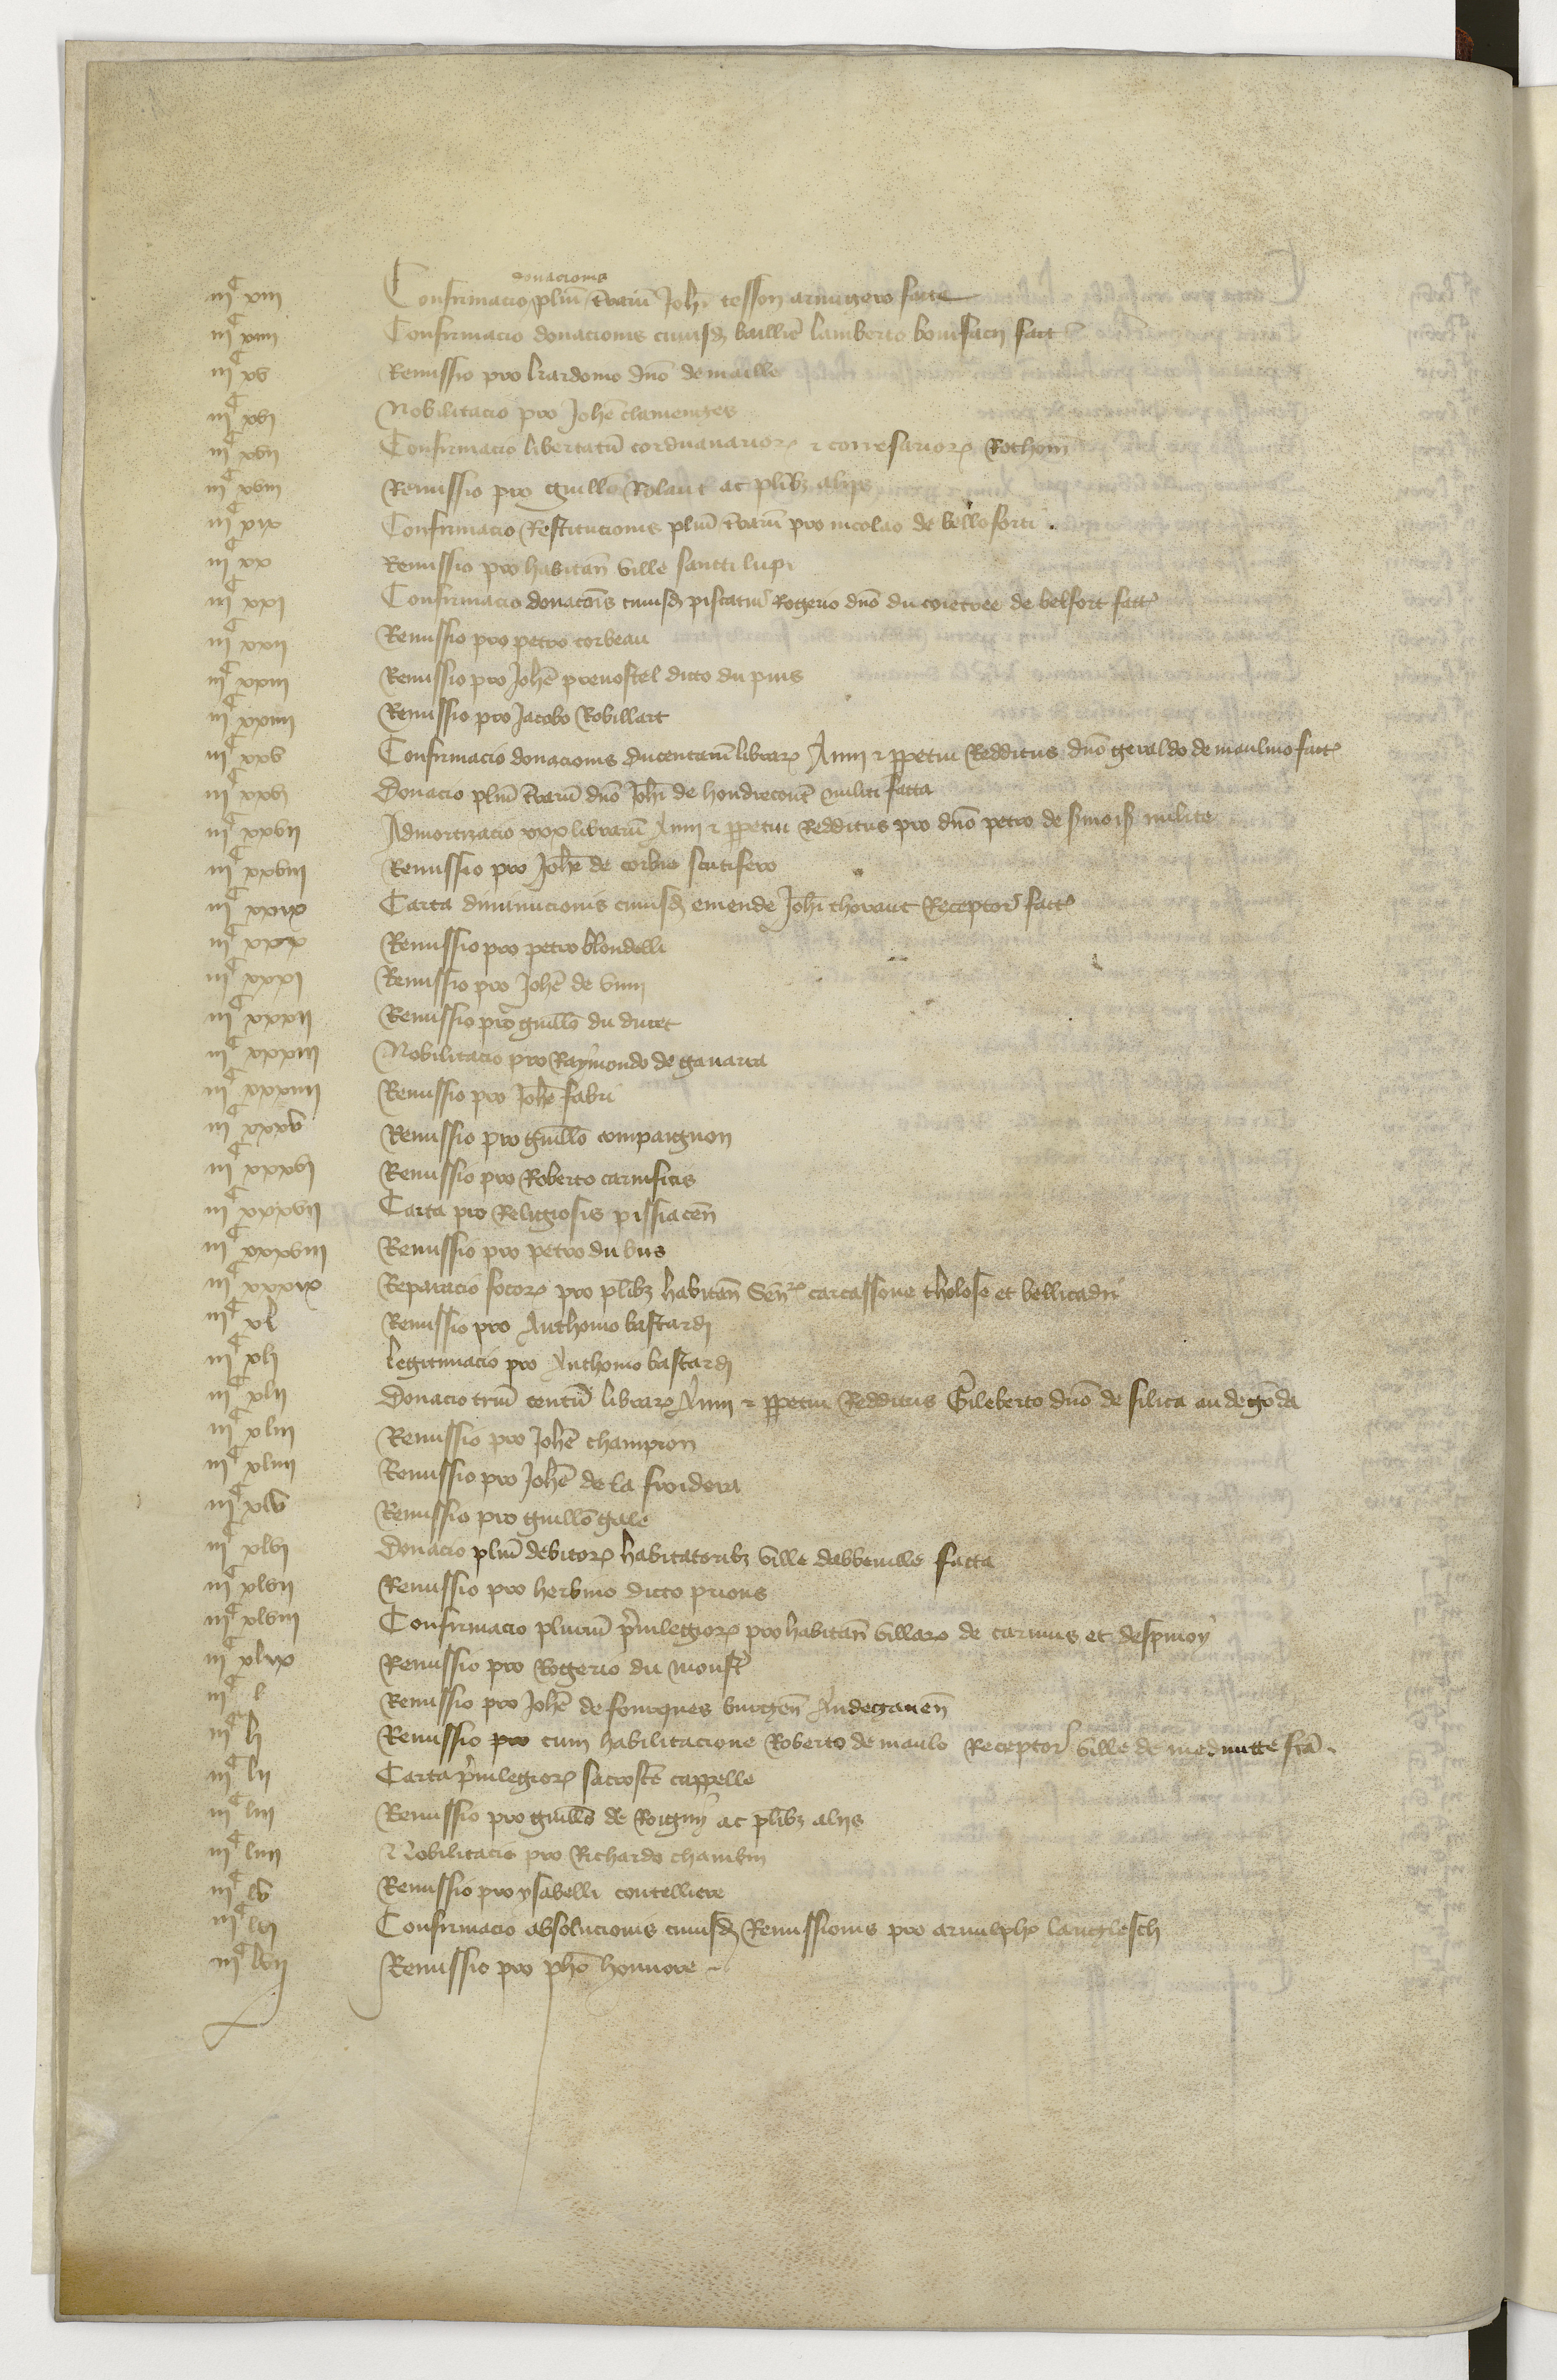 donacionis
iijᶜ xiij Confirmacio pluriū t̄rarū Joh̄i tesson armigero facte
iijᶜ xiiij Confirmacio donacionis cuiusdꝫ baillie lamberto bonifacij fact
iijᶜ xv Remissio pro hardoino dn̄o de maille
iijᶜ xvj Nobilitacio pro Joh̄e clamenges
iijᶜ xvij Confirmacio libertatū corduanarioꝝ ⁊ conresarioꝝ Rothom̄
iijᶜ xviij Remissio pro guill̄o Rolant ac pl̄ibꝫ alijs
iijᶜ xix Confirmacio Restitucionis pluriū t̄rarū pro nicolao de belloforti
iijᶜ xx Remissio pro habitan̄ ville sancti lupi
iijᶜ xxj Confirmacio donacōis cuiusdꝫ piscature Rogerio dn̄o de belfort fact
iijᶜ xxij Remissio pro petro corbeau
iijᶜ xxiij Remissio pro Joh̄e prevostel dicto du puis
iijᶜ xxiiij Remissio pro Jacobo Robillart
iijᶜ xxv Confirmacio donacionis ducentarū libraꝝ Annui ⁊ ꝑpetui Redditus dn̄o geraldo de maulmo fact
iijᶜ xxvj Donacio pluriū t̄rarū dn̄o Joh̄i de hondrecout militi facta
iijᶜ xxvij Admortizacio xxx librarū Annui ⁊ ꝑpetui Redditus pro dn̄o petro de milite
iijᶜ xxviij Remissio pro Joh̄e de corbie scutifero
iijᶜ xxix Carta diminucionis cuiusdꝫ emende Joh̄i thoraut Receptori fact
iijᶜ xxx Remissio pro petro blondelli
iijᶜ xxxj Remissio pro Joh̄e de vmi
iijᶜ xxxij Remissio pro guill̄o du duret
iijᶜ xxxiij Nobilitacio pro Raymondo de gavarra
iijᶜ xxxiiij Remissio pro Joh̄e fabri
iijᶜ xxxv Remissio pro guill̄o compaignon
iijᶜ xxxvj Remissio pro Roberto carnificis
iijᶜ xxxvij Carta pro Religiosis pissiacen̄
iijᶜ xxxviij Remissio pro petro du bus
iijᶜ xxxix Reparacio focoꝝ pro pl̄ibꝫ habitan̄ Sen̄ carcassone tholose et bellicadri
iijᶜ xl Remissio pro Anthonio bastardi
iijᶜ xlj legitimacio pro Anthonio bastardi
iijᶜ xlij Donacio triū centū libraꝝ Annui ⁊ ꝑpetui Redditus Gileberto dn̄o de silica
iijᶜ xliij Remissio pro Joh̄e champion
iijᶜ xliiij Remissio pro Joh̄e de la froidera
iijᶜ xlv Remissio pro guill̄o gale
iijᶜ xlvj Donacio pluriū debitoꝝ habitatoribꝫ ville dabbeville facta
iijᶜ xlvij Remissio pro herbino dicto prions
iijᶜ xlviij Confirmacio plurium p̄vilegioꝝ pro habitan̄ villaꝝ de carnins et despinoy
iijᶜ xlix Remissio pro Rogerio du monst
iijᶜ l Remissio pro Joh̄e de fourques burgen̄ Andegaven̄
iijᶜ lj Remissio pro cum habilitacione Roberto de maulo Receptori ville de medunte fc̄a
iijᶜ lij Carta p̄vilegioꝝ sacrosc̄e cappelle
iijᶜ liij Remissio pro guill̄o de Roigny ac pl̄ibꝫ alijs
iijᶜ liiij Nobilitacio pro Richardo chambin
iijᶜ lv Remissio pro ysabelli contelliere
iijᶜ lvj Confirmacio absolucionis cuiusdꝫ Remissionis pro arnulpho langlesch
iijᶜ lvij Remissio pro ph̄o honnore